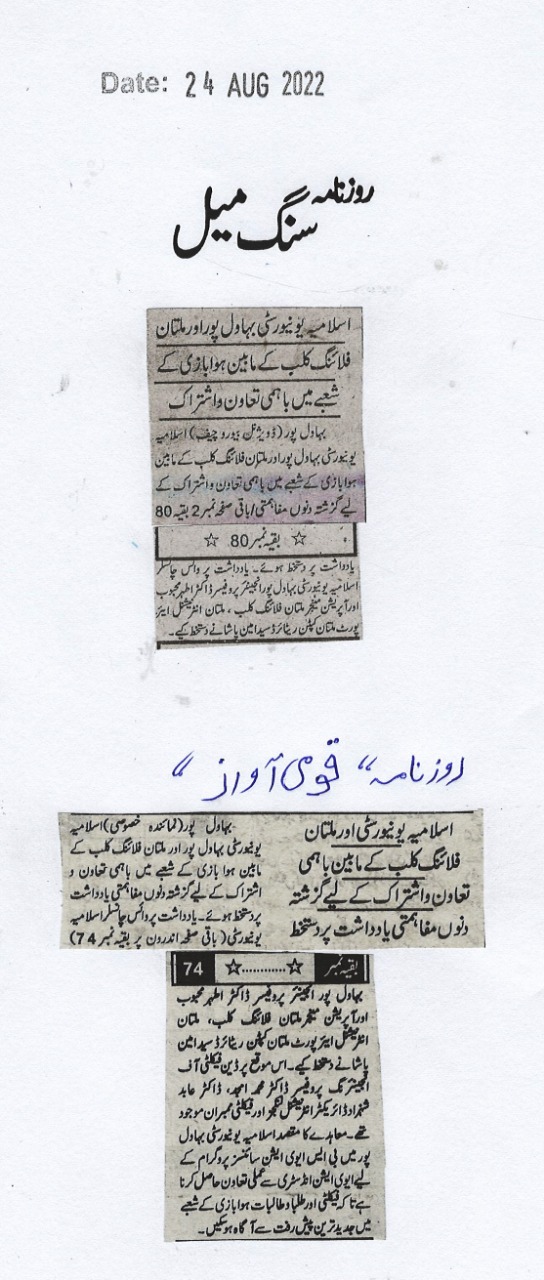 Date: 24 AUG 2022
روزنامہ
سنگ میل
اسلامیہ یونیورسٹی بہاول پور اور ملتان
فلائنگ کلب کے مابین ہوا بازی کے
شعبے میں باہمی تعاون و اشتراک
بہاول پور (ڈویژنل بیورو چیف) اسلامیہ
یونیورسٹی بہاول پور اور ملتان فلائنگ کلب کے مابین
ہوا بازی کے شعبے میں باہمی تعاون و اشتراک کے
لیے گزشتہ دنوں مفاہمتی/باقی صفحہ نمبر 2 بقیہ 80
☆ بقیہ نمبر 80 ☆
یادداشت پر دستخط ہوئے۔ یادداشت پر وائس چانسلر
اسلامیہ یونیورسٹی بہاول پور انجینئر پروفیسر ڈاکٹر اطہر محبوب
اور آپریشن منیجر ملتان فلائنگ کلب ، ملتان انٹرنیشنل ایئر
پورٹ ملتان کیپٹن ریٹائرڈ سید امین پاشا نے دستخط کیے۔
روزنامہ “ قومی آواز “
اسلامیہ یونیورسٹی اور ملتان
فلائنگ کلب کے مابین باہمی
تعاون و اشتراک کے لیے گزشتہ
دنوں مفاہمتی یادداشت پر دستخط
بہاول پور (نمائندہ خصوصی) اسلامیہ
یونیورسٹی بہاول پور اور ملتان فلائنگ کلب کے
مابین ہوا بازی کے شعبے میں باہمی تعاون و
اشتراک کے لیے گزشتہ دنوں مفاہمتی یادداشت
پر دستخط ہوئے۔ یادداشت پر وائس چانسلر اسلامیہ
یونیورسٹی (باقی صفحہ اندرون پر بقیہ نمبر 74)
بقیہ نمبر ☆............☆ 74
بہاول پور انجینئر پروفیسر ڈاکٹر اطہر محبوب
اور آپریشن منیجر ملتان فلائنگ کلب، ملتان
انٹرنیشنل ایئر پورٹ ملتان کیپٹن ریٹائرڈ سید امین
پاشا نے دستخط کیے۔ اس موقع پر ڈین فیکلٹی آف
انجینئرنگ پروفیسر ڈاکٹر محمد امجد، ڈاکٹر عابد
شہزاد ڈائریکٹر انٹرنیشنل لنکجز اور فیکلٹی ممبران موجود
تھے۔ معاہدے کا مقصد اسلامیہ یونیورسٹی بہاول
پور میں بی ایس ایوی ایشن سائنسز پروگرام کے
لیے ایوی ایشن انڈسٹری سے عملی تعاون حاصل کرنا
ہے تاکہ فیکلٹی اور طلباء و طالبات ہوا بازی کے شعبے
میں جدید ترین پیش رفت سے آگاہ ہو سکیں۔